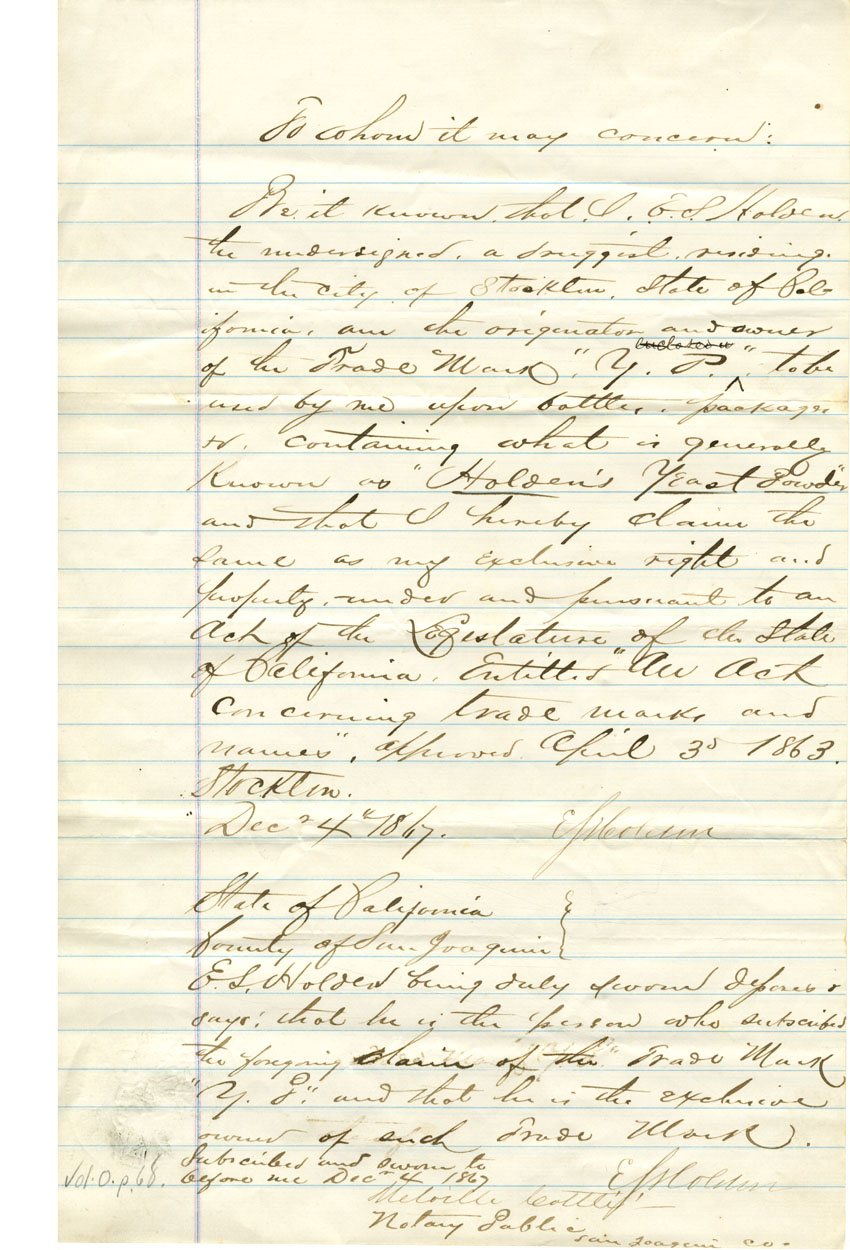 To whom it may concern:
Be it known, that I, E. S. Holden,
the undersigned, a druggist, residing
in the city of Stockton, State of Cal-
ifornia, am the originator and owner
of the Trade Mark "Y. P." to be
used by me upon bottles, packages
&c. containing what is generally
Known as "Holden's Yeast Powder"
and that I hereby claim the
same as my exclusive right and
property, under and pursuant to an
Act of the Legislature of the State
of California, Entitled "An Act
concerning trade marks and
names", approved April 3d 1863.
Stockton.
Decr 4th 1867. E S Holden
State of California }
County of San Joaquin }
E. S. Holden being duly sworn deposes &
says: that he is the person who subscribed
the foregoing claim of the "Trade Mark
"Y. P." and that he is the exclusive
owner of such Trade Mark.
Subscribed and sworn to
before me Decr 4 1867 E S Holden
Melville Cottle
Notary Public
San Joaquin co.
Vol. O. p. 68.